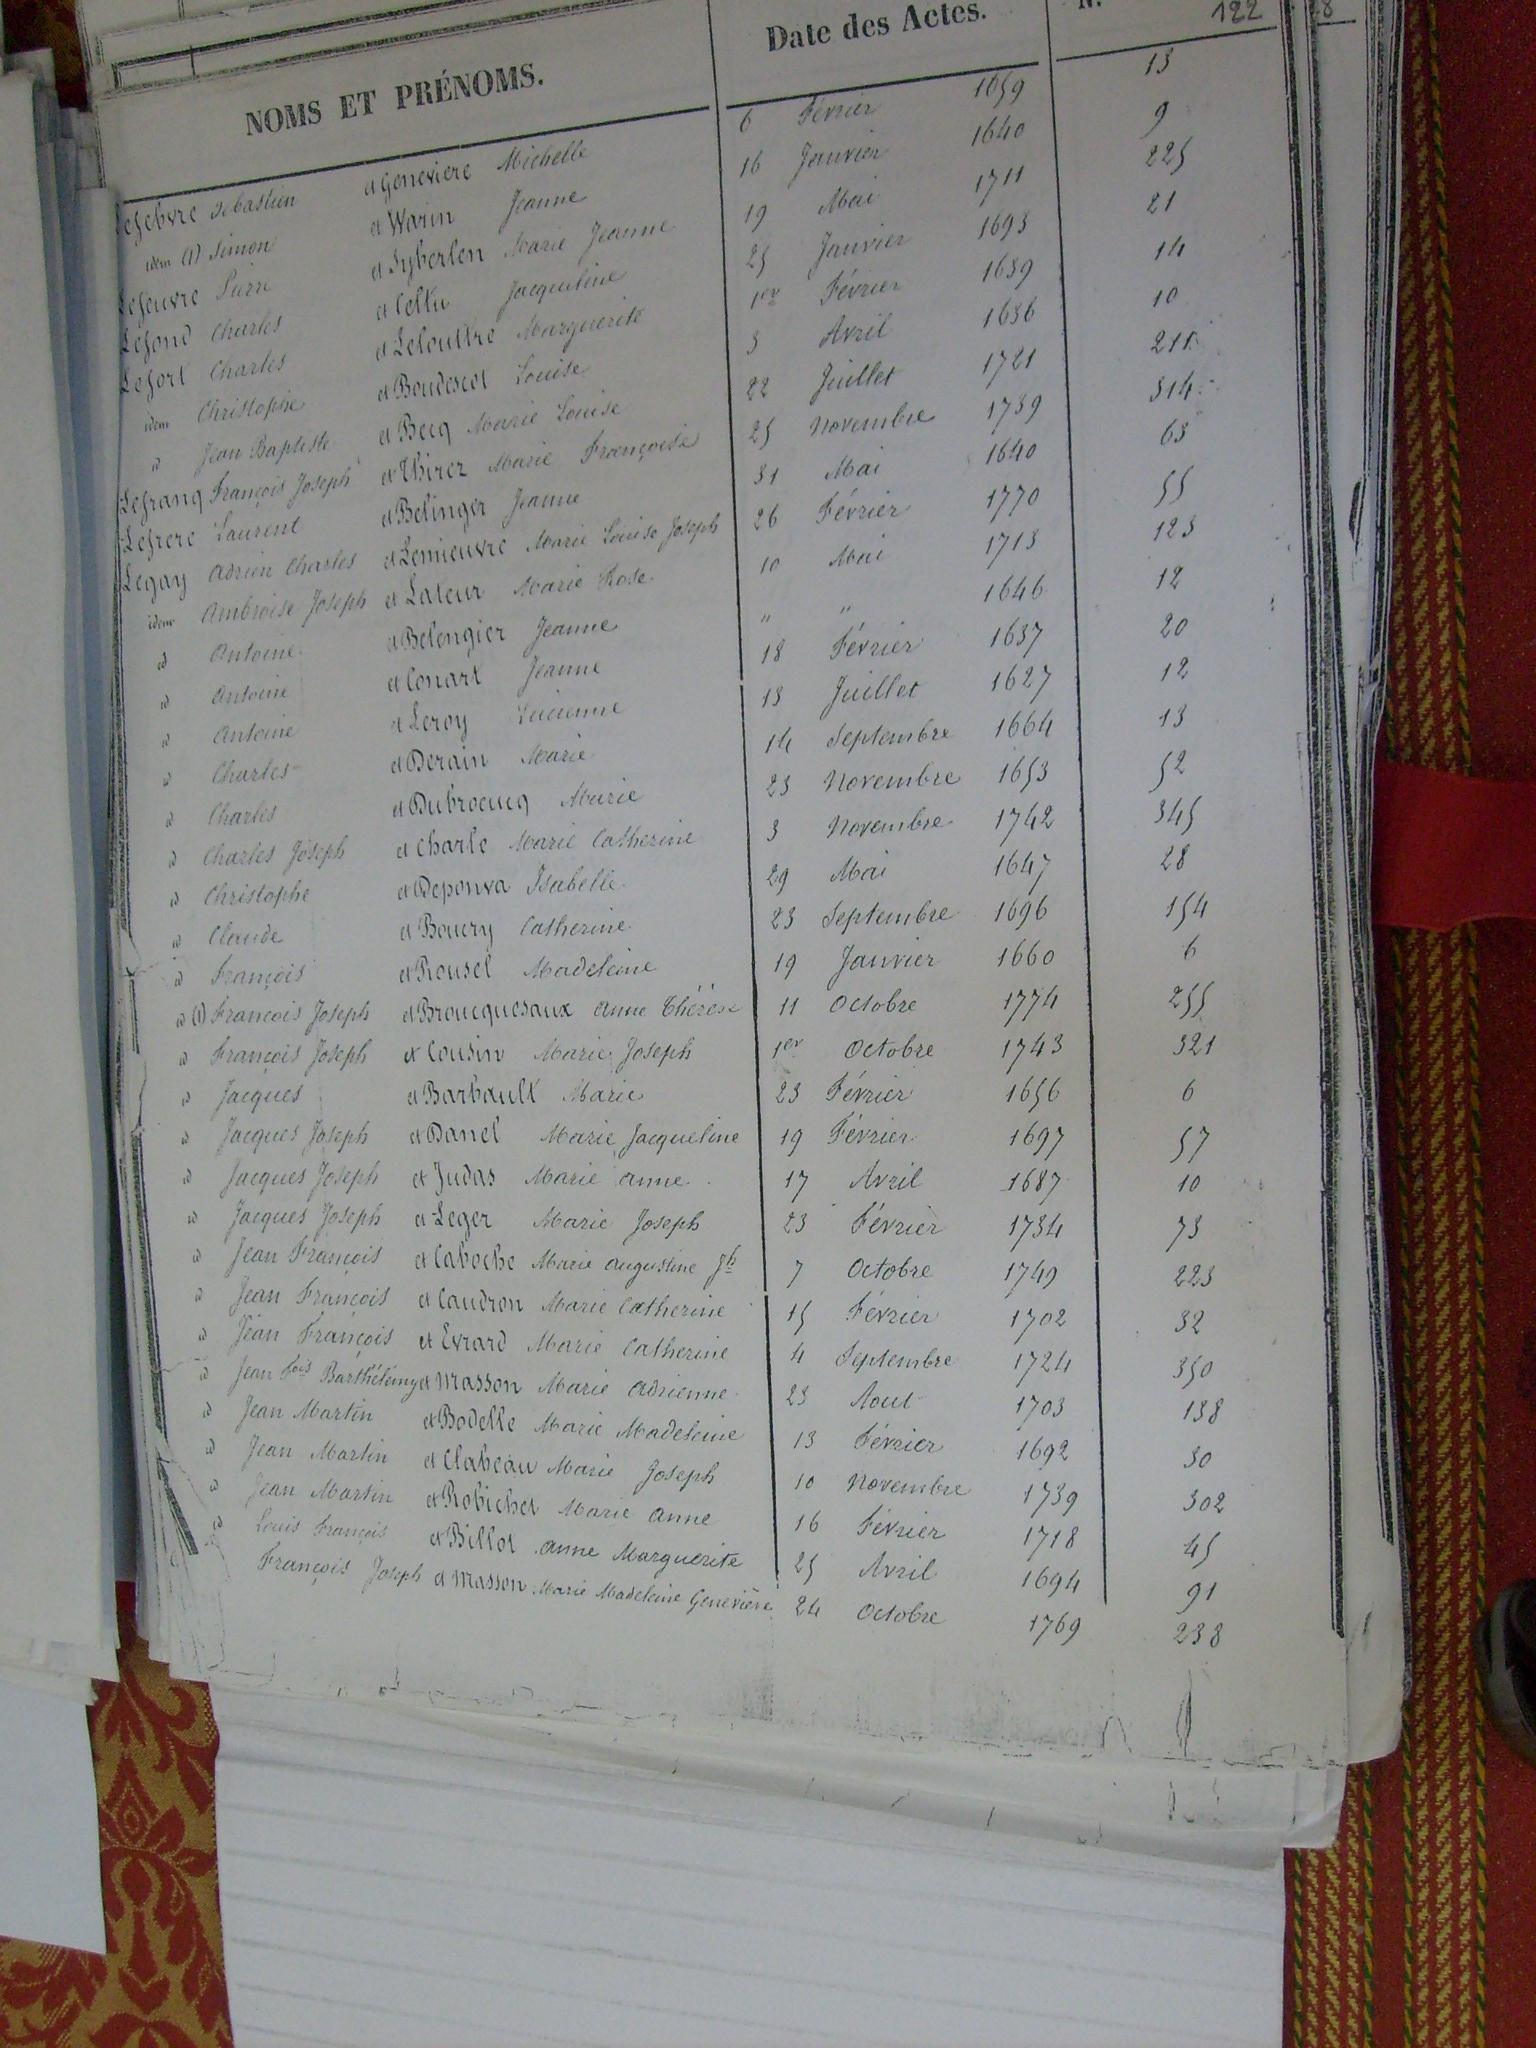 NOMS ET PRÉNOMS. Date des Actes. N. 122 28
Lefebvre Sebastien et Genevière Michelle 6 Février 1659 13
idem (1) Simon et Warin Jeanne 16 Janvier 1640 9
Lefeuvre Pierre et Syberlen Marie Jeanne 19 Mai 1711 225
Lefond Charles et Jacqueline 25 Janvier 1693 21
Lefort Charles et Leloultre Marguerite 1er Février 1639 14
idem Christophe et Boudescot Louise 3 Avril 1636 10
id Jean Baptiste et Becq Marie Louise 22 Juillet 1721 211
Lefranq François Joseph et Thirez Marie Françoise 25 Novembre 1739 314
Lefrere Laurent et Belinger Jeanne 31 Mai 1640 63
Legay Adrien Charles et Lemieuvre Marie Louise Joseph 26 Février 1770 55
idem Ambroise Joseph et Lateur Marie Rose 10 Mai 1713 123
id Antoine et Belengier Jeanne " " 1646 12
id Antoine et Conart Jeanne 18 Février 1637 20
id Antoine et Leroy Lucienne 13 Juillet 1627 12
id Charles et Derain Marie 14 Septembre 1664 13
id Charles et Dubroeucq Marie 23 Novembre 1653 52
id Charles Joseph et Charle Marie Catherine 3 Novembre 1742 345
id Christophe et Deponva Isabelle 29 Mai 1647 28
id Claude et Boucry Catherine 23 Septembre 1696 154
id François et Rousel Madeleine 19 Janvier 1660 6
id (1) François Joseph et Broucquesaux Anne Thérèse 11 Octobre 1774 255
id François Joseph et Cousin Marie Joseph 1er Octobre 1743 321
id Jacques et Barbault Marie 23 Février 1656 6
id Jacques Joseph et Danel Marie Jacqueline 19 Février 1697 57
id Jacques Joseph et Judas Marie Anne 17 Avril 1687 10
id Jacques Joseph et Leger Marie Joseph 23 Février 1734 73
id Jean François et Caboche Marie Augustine Jh 7 Octobre 1749 223
id Jean François et Caudron Marie Catherine 15 Février 1702 32
id Jean François et Evrard Marie Catherine 4 Septembre 1724 350
id Jean Fois Barthélémy et Masson Marie Adrienne 23 Aout 1703 138
id Jean Martin et Bodelle Marie Madeleine 13 Février 1692 30
id Jean Martin et Clabeau Marie Joseph 10 Novembre 1739 302
id Jean Martin et Robichet Marie Anne 16 Février 1718 45
id Louis François et Billot Anne Marguerite 25 Avril 1694 91
François Joseph et Masson Marie Madeleine Genevière 24 Octobre 1769 238